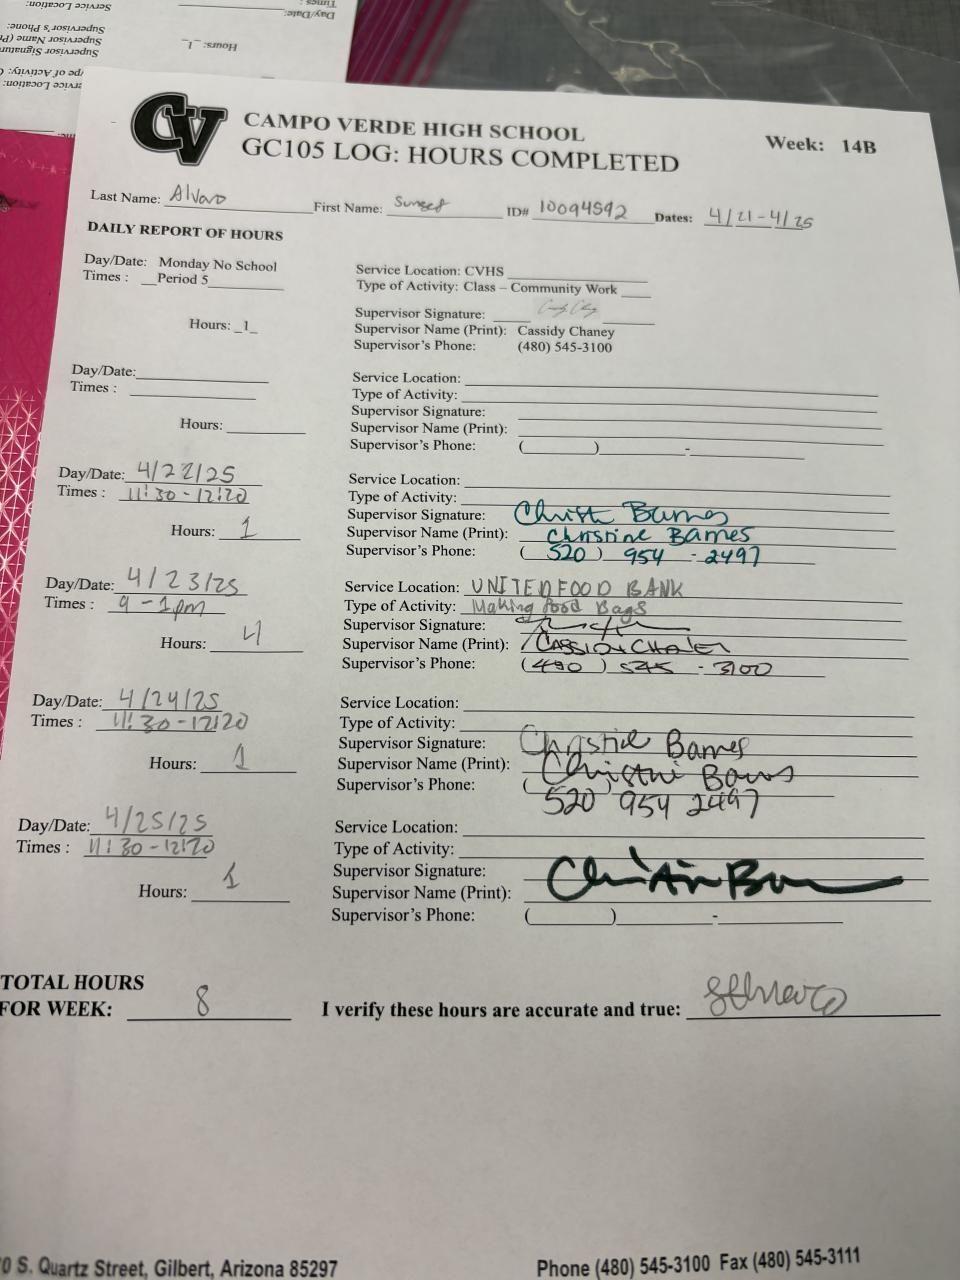 Service Location:
Day/Date:
Times :
Supervisor's Phone:
Supervisor Name (P
Supervisor Signatur
Hours: _1_
pe of Activity: C
rvice Location:
CV
CAMPO VERDE HIGH SCHOOL
GC105 LOG: HOURS COMPLETED
Week: 14B
Last Name: Alvaro First Name: Sunset ID# 10094592 Dates: 4/21-4/25
DAILY REPORT OF HOURS
Day/Date: Monday No School
Times : __Period 5
Service Location: CVHS
Type of Activity: Class – Community Work
Supervisor Signature:
Hours: _1_
Supervisor Name (Print): Cassidy Chaney
Supervisor's Phone: (480) 545-3100
Day/Date:
Times :
Service Location:
Type of Activity:
Supervisor Signature:
Hours:
Supervisor Name (Print):
Supervisor's Phone: ( ) -
Day/Date: 4/22/25
Times : 11:30-12:20
Service Location:
Type of Activity:
Supervisor Signature: Christi Barnes
Hours: 1
Supervisor Name (Print): Christine Barnes
Supervisor's Phone: (520) 954-2497
Day/Date: 4/23/25
Times : 9-1pm
Service Location: UNITED FOOD BANK
Type of Activity: Making food Bags
Supervisor Signature:
Hours: 4
Supervisor Name (Print): CASSIDY CHANEY
Supervisor's Phone: (480) 545-3100
Day/Date: 4/24/25
Times : 11:30-12:20
Service Location:
Type of Activity:
Supervisor Signature: Christie Barnes
Hours: 1
Supervisor Name (Print):
Supervisor's Phone: (
520 954 2497
Day/Date: 4/25/25
Times : 11:30-12:20
Service Location:
Type of Activity:
Supervisor Signature:
Hours: 1
Supervisor Name (Print):
Supervisor's Phone: ( ) -
TOTAL HOURS
FOR WEEK: 8
I verify these hours are accurate and true:
0 S. Quartz Street, Gilbert, Arizona 85297
Phone (480) 545-3100 Fax (480) 545-3111